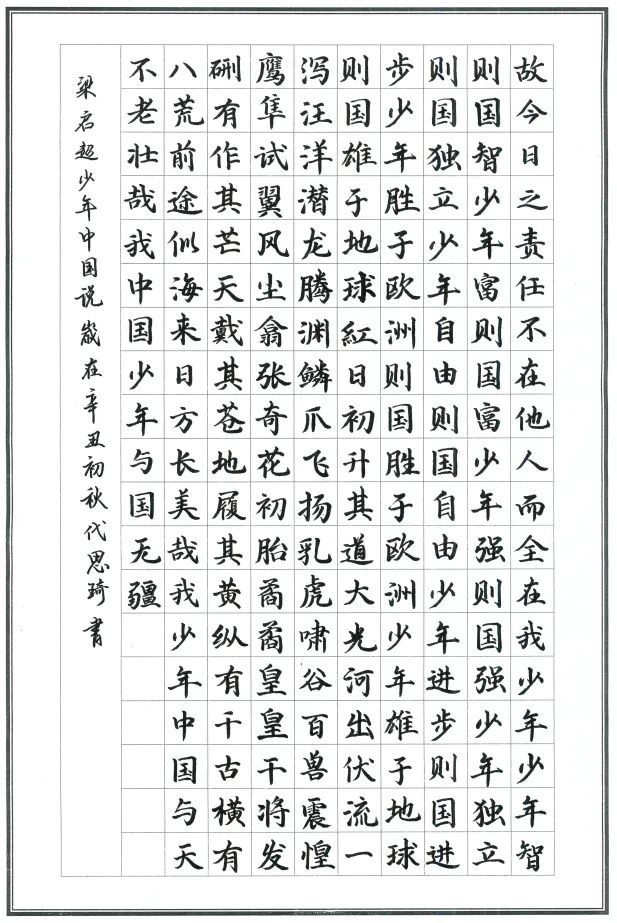 故今日之责任不在他人而全在我少年少年智
则国智少年富则国富少年强则国强少年独立
则国独立少年自由则国自由少年进步则国进
步少年胜于欧洲则国胜于欧洲少年雄于地球
则国雄于地球紅日初升其道大光河出伏流一
泻汪洋潜龙腾渊鳞爪飞扬乳虎啸谷百兽震惶
鹰隼试翼风尘翕张奇花初胎矞矞皇皇干将发
硎有作其芒天戴其苍地履其黄纵有千古横有
八荒前途似海来日方长美哉我少年中国与天
不老壮哉我中国少年与国无疆
梁启超少年中国说 歲在辛丑初秋代思琦書